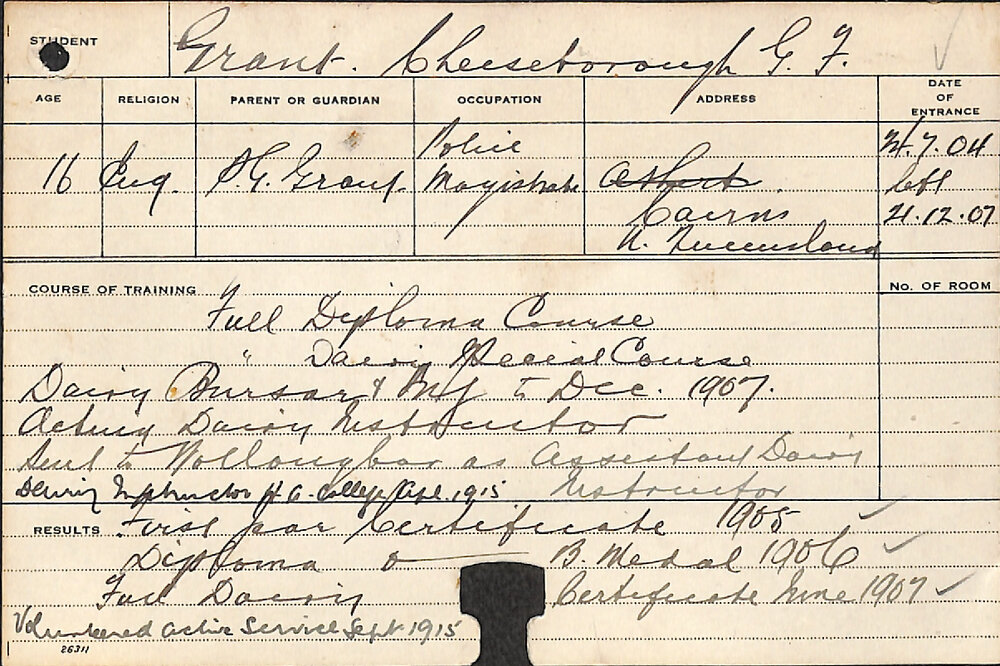 STUDENT
Grant. Cheeseborough G. F.
AGE RELIGION PARENT OR GUARDIAN OCCUPATION ADDRESS DATE OF ENTRANCE
16 Eng. P.G. Grant. Police Magistrate
Cairns
N. Queensland
7.04
left
21.12.07
COURSE OF TRAINING
No. OF ROOM
Full Diploma Course
" Dairy Special Course
Dairy Bursar & to Dec. 1907.
Acting Dairy Instructor
Sent to Wollongbar as Assistant Dairy
Instructor
Dairy Instructor H. A. College Apl. 1915
RESULTS
First year Certificate 1905
Diploma B. Medal 1906
Full Dairy Certificate June 1907
Volunteered active Service Sept 1915
26311